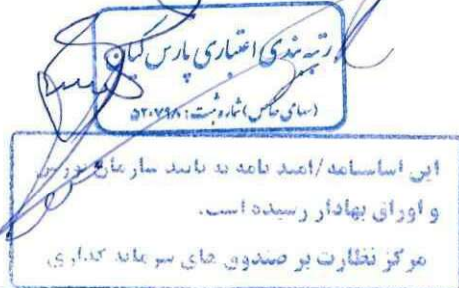 رتبه بندی اعتباری پارس کیان
(سهامی خاص) شماره ثبت: ۵۲۰۷۹۸
این اساسنامه/امید نامه به تایید سازمان بورس
و اوراق بهادار رسیده است.
مرکز نظارت بر صندوق های سرمایه گذاری